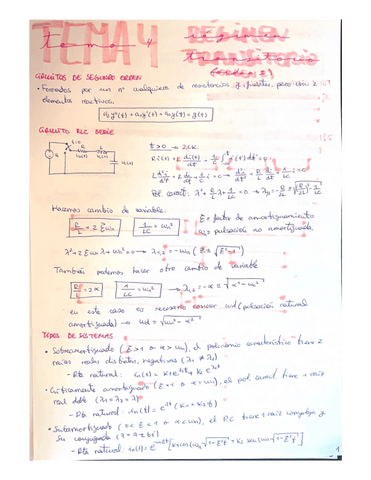 TEMA 4 RÉGIMEN
tema 4 régimen
TRANSITORIO
(ORDEN 2)
CIRCUITOS DE SEGUNDO ORDEN
• Formados por un nº cualquiera de resistencias y fuentes, pero con 2
elementos reactivos.
a₂y''(t) + a₁y'(t) + a₀y(t) = g(t)
CIRCUITO RLC SERIE
t>0 → 2LK
Hacemos cambio de variable:
R/L = 2ξωn    1/LC = ωn²    ξ = factor de amortiguamiento
ωn = pulsación no amortiguada
λ² + 2ξωnλ + ωn² = 0 → λ₁,₂ = -ωn (ξ ± √ξ²-1)
También podemos hacer otro cambio de variable
R/L = 2α    1/LC = ωn² → λ₁,₂ = -α ± √α²-ωn²
en este caso es necesario conocer ωd (pulsación natural
amortiguada) → ωd = √ωn²-α²
TIPOS DE SISTEMAS
• Sobreamortiguado (ξ>1 o α>ωn), el polinomio característico tiene 2
raíces reales distintas, negativas (λ₁ ≠ λ₂)
- Rta natural:
• Críticamente amortiguado (ξ=1 o α=ωn), el pol. caract. tiene 1 raíz
real doble (λ₁=λ₂=λ)
- Rta natural: in(t) = e^λt (K₁+K₂t)
• Subamortiguado (0<ξ<1 o α<ωn), el PC tiene 1 raíz compleja y
su conjugada (λ=a±bi)
- Rta natural: in(t) = e^-αt [K₁cos(ωn√1-ξ² t) + K₂ sen(ωn√1-ξ² t)]
1